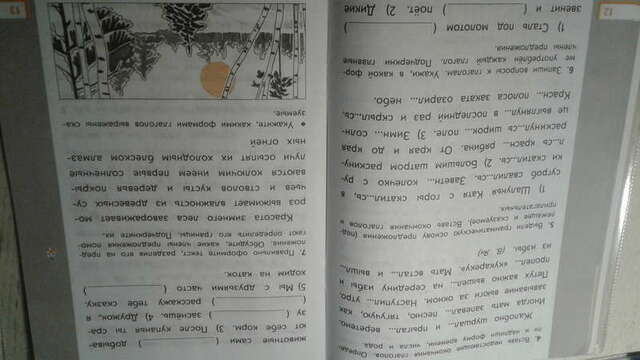 4. Вставь недостающие окончания глаголов. Опреде-
ли и надпиши форму времени, числа и рода.
Жалобно шуршал... и прыгал... веретено.
Иногда мать запевал... песню, тягучую, как
завывание вьюги за окном. Наступил... утро.
Петух важно вышел... на середину избы и
пропел... «кукареку». Мать встал... и вышл...
из избы. (В. Ян)
5. Выдели грамматическую основу предложения (под-
лежащее и сказуемое). Вставь окончания глаголов и
прилагательных.
1) Шалунья Катя с горы скатил...сь, в
сугроб свалил...сь. Заветн... колечко с ру-
ки скатил...сь. 2) Большим шатром раскину-
л...сь красн... рябина. От края и до края
раскинул...сь широк... поле. 3) Зимн... солн-
це выглянул... в последний раз и скрыл...сь.
Красн... полоса заката озарил... небо.
6. Запиши вопросы к глаголам. Укажи, в какой фор-
ме употреблён каждый глагол. Подчеркни главные
члены предложения.
1) Сталь под молотом (
звенит и ( ) поёт. 2) Дикие
12
животные сами ( ) добыва-
ют себе корм. 3) После купанья ты сра-
зу ( ) заснёшь. 4) Дружок, я
( ) расскажу тебе сказку.
5) Мы с друзьями часто ( )
ходим на каток.
7. Правильно оформите текст, разделив его на пред-
ложения. Обсудите, какие члены предложения помо-
гают определить его границы. Подчеркните их.
Красота зимнего леса завораживает мо-
роз выжимает влажность из древесных су-
чьев и стволов кусты и деревья покры-
ваются колючим инеем первые солнечные
лучи осыпят их холодным блеском алмаз-
ных огней
• Укажите, какими формами глаголов выражены ска-
зуемые.
13